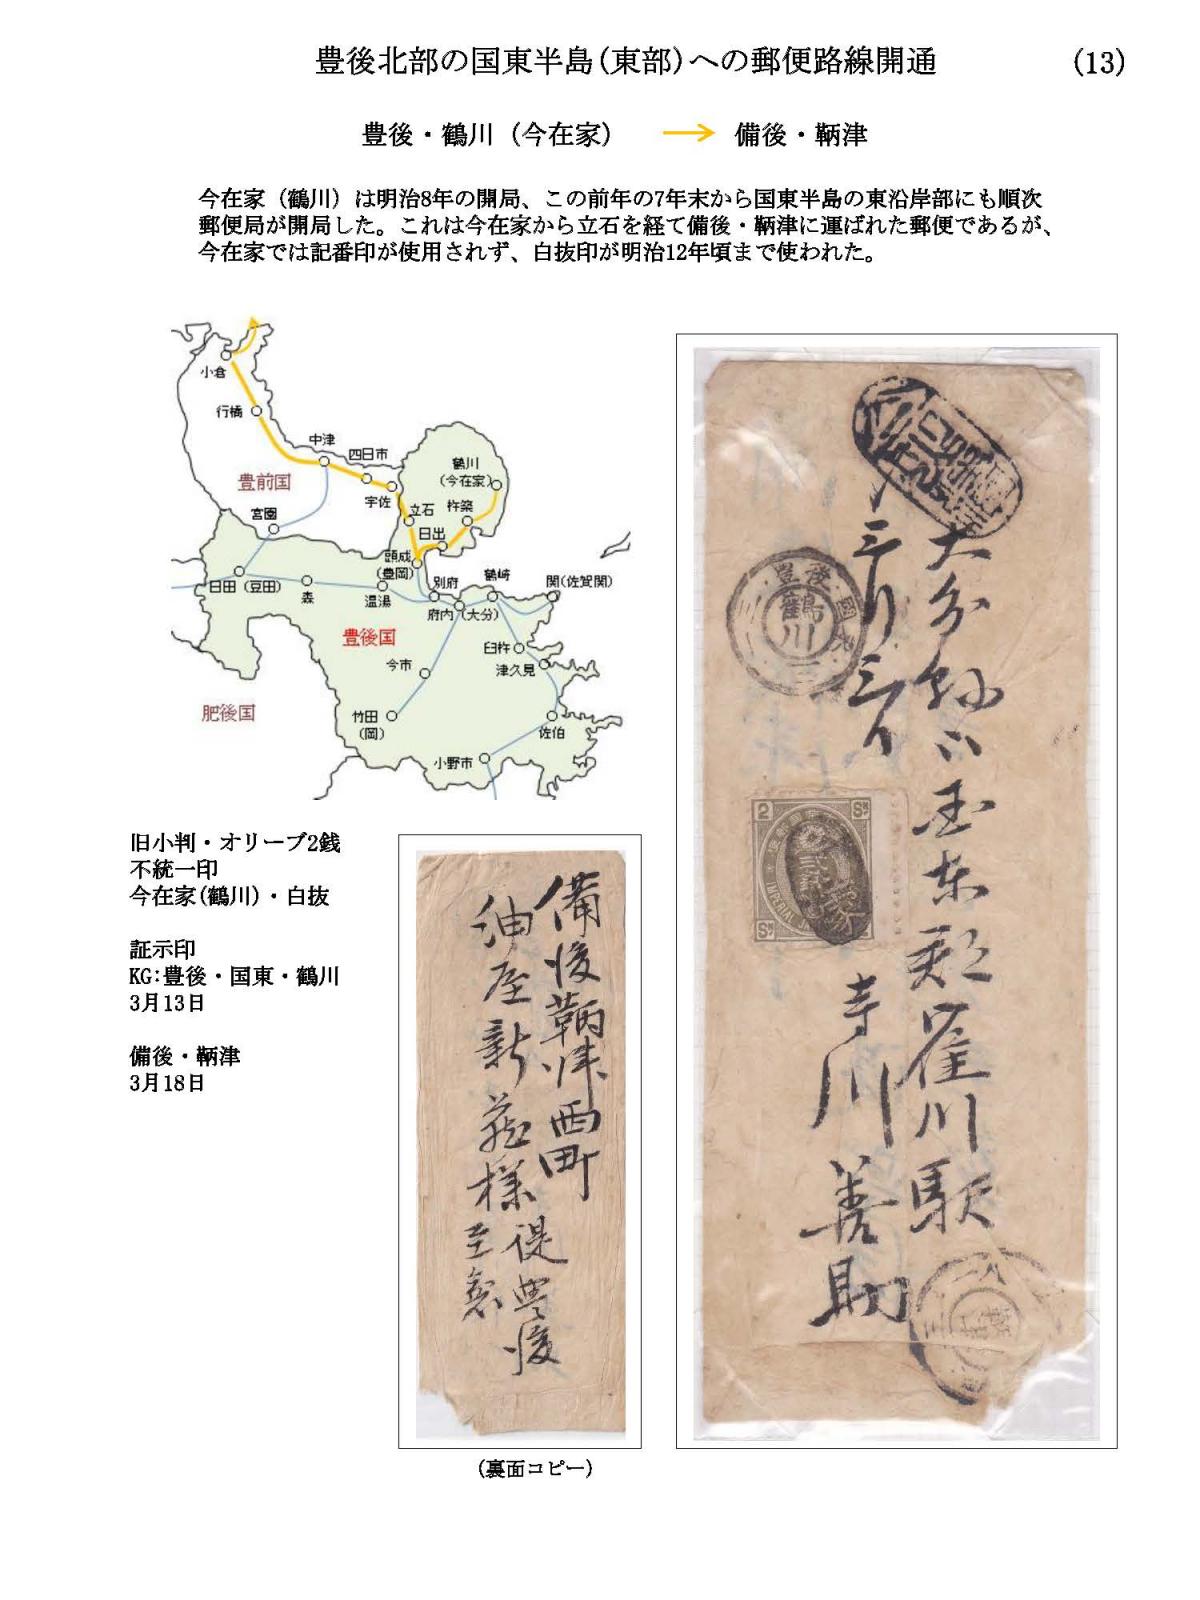 豊後北部の国東半島(東部)への郵便路線開通
(13)
豊後・鶴川（今在家） → 備後・鞆津
今在家（鶴川）は明治8年の開局、この前年の7年末から国東半島の東沿岸部にも順次
郵便局が開局した。これは今在家から立石を経て備後・鞆津に運ばれた郵便であるが、
今在家では記番印が使用されず、白抜印が明治12年頃まで使われた。
小倉
行橋
中津
四日市
鶴川
(今在家)
豊前国
宇佐
立石
杵築
宮園
日出
頭成
(豊岡)
別府
鶴崎
関(佐賀関)
日田（豆田）
森
温湯
府内（大分）
豊後国
臼杵
今市
津久見
肥後国
竹田
(岡)
佐伯
小野市
旧小判・オリーブ2銭
不統一印
今在家(鶴川)・白抜
証示印
KG:豊後・国東・鶴川
3月13日
備後・鞆津
3月18日
備後鞆津西町
油屋新蔵様
従豊後
(裏面コピー)
豊後
鶴川
大分縣下国東郡崔川駅
寺川善助
2
Sⁿ
IMPERIAL